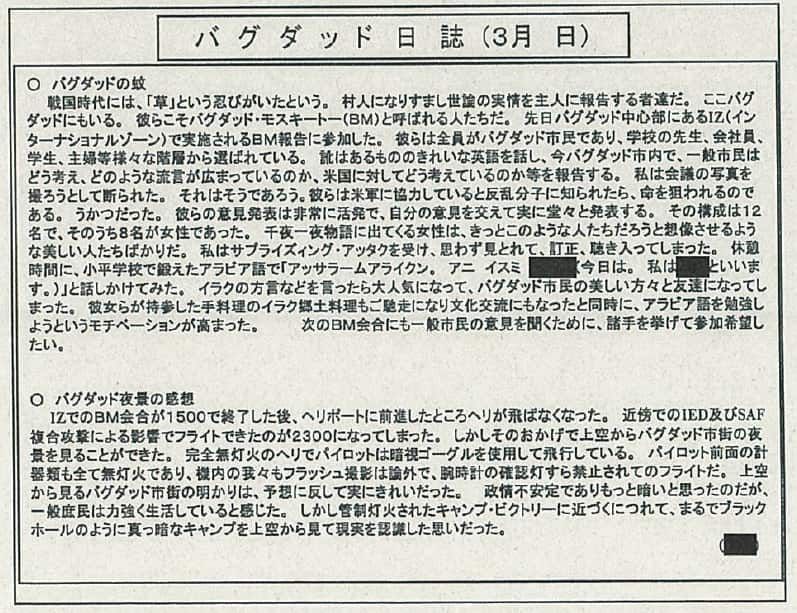 バグダッド日誌(3月 日)
○ バグダッドの蚊
戦国時代には、「草」という忍びがいたという。 村人になりすまし世論の実情を主人に報告する者達だ。 ここバグ
ダッドにもいる。 彼らこそバグダッド・モスキートー(BM)と呼ばれる人たちだ。 先日バグダッド中心部にあるIZ(イン
ターナショナルゾーン)で実施されるBM報告に参加した。 彼らは全員がバグダッド市民であり、学校の先生、会社員、
学生、主婦等様々な階層から選ばれている。 訛はあるもののきれいな英語を話し、今バグダッド市内で、一般市民は
どう考え、どのような流言が広まっているのか、米国に対してどう考えているのか等を報告する。 私は会議の写真を
撮ろうとして断られた。 それはそうであろう。彼らは米軍に協力していると反乱分子に知られたら、命を狙われるので
ある。 うかつだった。 彼らの意見発表は非常に活発で、自分の意見を交えて実に堂々と発表する。 その構成は12
名で、そのうち8名が女性であった。 千夜一夜物語に出てくる女性は、きっとこのような人たちだろうと想像させるよう
な美しい人たちばかりだ。 私はサプライズィング・アッタクを受け、思わず見とれて、訂正、聴き入ってしまった。 休憩
時間に、小平学校で鍛えたアラビア語で「アッサラームアライクン。 アニ イスミ (今日は。 私は といいま
す。)」と話しかけてみた。 イラクの方言などを言ったら大人気になって、バグダッド市民の美しい方々と友達になってし
まった。 彼女らが持参した手料理のイラク郷土料理もご馳走になり文化交流にもなったと同時に、アラビア語を勉強し
ようというモチベーションが高まった。 次のBM会合にも一般市民の意見を聞くために、諸手を挙げて参加希望し
たい。
○ バグダッド夜景の感想
IZでのBM会合が1500で終了した後、ヘリポートに前進したところヘリが飛ばなくなった。 近傍でのIED及びSAF
複合攻撃による影響でフライトできたのが2300になってしまった。 しかしそのおかげで上空からバグダッド市街の夜
景を見ることができた。 完全無灯火のヘリでパイロットは暗視ゴーグルを使用して飛行している。 パイロット前面の計
器類も全て無灯火であり、機内の我々もフラッシュ撮影は論外で、腕時計の確認灯すら禁止されてのフライトだ。 上空
から見るバグダッド市街の明かりは、予想に反して実にきれいだった。 政情不安定でありもっと暗いと思ったのだが、
一般庶民は力強く生活していると感じた。 しかし管制灯火されたキャンプ・ビクトリーに近づくにつれて、まるでブラック
ホールのように真っ暗なキャンプを上空から見て現実を認識した思いだった。